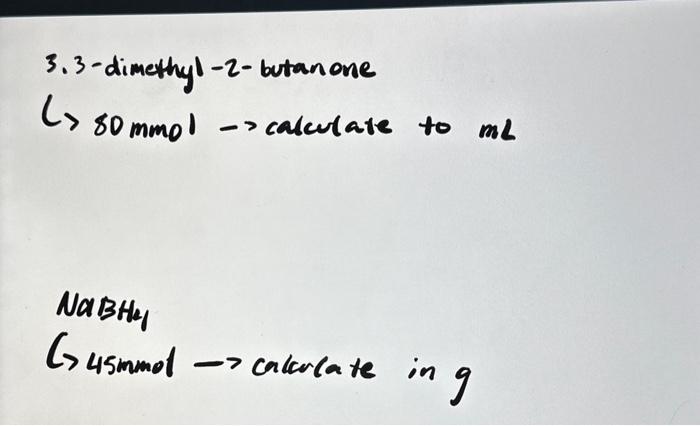 3,3-dimethyl-2-butanone
↳ 80 mmol -> calculate to mL
NaBH4
↳ 45mmol -> calculate in g